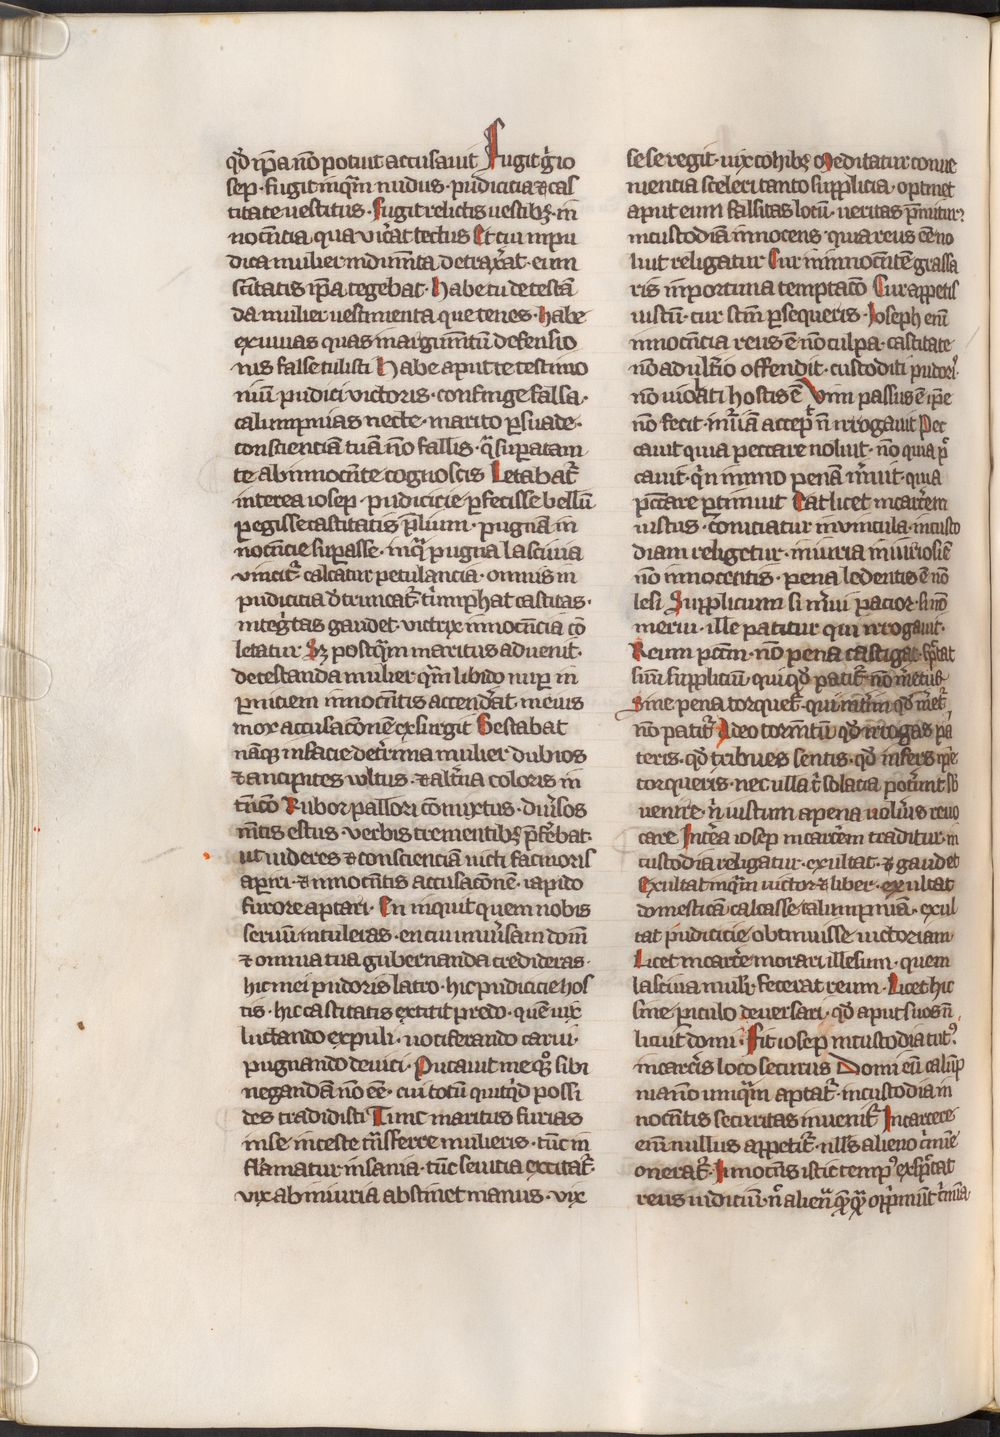 qd̄ ip̄a nō potuit accusauit Fugit g̊ io
sep · fugit inqͣm nudus · pudicicia ⁊ cas
titate uestitus · Fugit relictis uestibꝫ · in
nocēncia qua vic̄at tectus Et cui inpu
dica mulier indumīta detrax̄at · eum
sāctitatis ip̄a tegebat · Habe tu detestā
da mulier uestimenta que tenes · Habe
exuuias quas in argumētū defensio
nis false tulisti Habe aput te testimo
niū pudici uictoris · confinge falsa ·
calumpnias necte · marito ꝑsuade ·
conscienciā tuā nō fallis · q̄ suꝑatam
te ab innocēnte cognoscis Letabat̄
interea iosep · pudicicie ꝑfecisse bellū
ꝑegisse castitatis p̄lium · pugnā in
nocēncie suꝑasse · in qͣ pugna lasciuia
vincit̄ calcatur petulancia · omnis in
pudicicia dētruncat̄ · tͥmphat castitas ·
integͥtas gaudet · victrix innocēncia cō
letatur Sꝫ postqͣm maritus aduenit ·
detestanda mulier qͣm libido nuꝑ in
ꝑniciem innocētis accendāt · in eius
mox accusacōnem exsurgit Gestabat
nāqꝫ in facie det̄rima mulier dubios
⁊ ancipites vultus · ⁊ alt̄ua coloris in
tēnco Rubor pallori cōmixtus · diu̾sos
mētis estus · verbis trementibꝫ p̄fe̾bat ·
ut uideres ⁊ conscienciā uicti facinoris
aꝑiri · ⁊ innocētis accusacōnē · rapido
furore aptari · En inquit quem nobis
seruū intuleras · en cui uniu̾sam domū
⁊ omnia tua gubernanda credideras ·
hic mei pudoris latro · hic pudicicie hos
tis · hic castitatis extitit predo · quē uix
luctando expuli · uociferando carui ·
pugnando deuici · Putauit me qͦqꝫ sibi
negandā nō eē · cui totū quicqͥd possi
des tradidisti Tunc maritus furias
in se inceste tn̄sferre mulieris · tūc in
flāmatur insania · tūc seuicia excitat̄ ·
vix ab iniuria abstinet manus · vix
sese regit · uix cohibꝫ Meditatur conue
niencia sceleri tanto supplicia · optinet
aput eum falsitas locū · ueritas p̄mitur ·
in custodiā innocens · quia reus eē no
luit religatur Cur in innocētē grassa
ris inportuna temptacō Cur appetis
iustū · cur sc̄m ꝑsequeris · Ioseph enī
innocēncia reus ē nō culpa · castitate
nō adult̄io offendit · custoditi pudor̄
nō uiolati hostis ē Vim passus ē ip̄e
nō fecit · iniuriā accepit n̄ irrogauit Pec
cauit quia peccare noluit · nō quia pͨ
cauit · qͥn immo penā m̄uit · quia
pͨcare ꝑtimuit Eat licet in carc̄em
iustus · c̄onuciatur in vincula · in custo
diam religetur · iniuria iniuriosi ē
nō innocētis · pena ledentis ē nō
lesi Supplicium si m̄ui pacior · si nō
merui · ille patitur qui irrogauit ·
Reum pctm̄ · nō pena castigat · sp̄ctat
suū suppliciū · qui qd̄ patit̄ nō m̄etur
Sine pena torquet̄ · qui mītim qd̄ m̄et̄
nō patit̄ Adeo tormētū qd̄ irrogas pa
teris · qd̄ tribues sentis · qd̄ infers ip̄e
torqueris · nec ulla t̄ solacia pot̄unt sb̄
uenire · n̄ iustum a pena uolu̾is reuo
care Int̄ea iosep in carc̄em traditur · in
custodia religatur · exultat · ⁊ gaudet
Exultat inqͣm uictor ⁊ liber · exultat
domesticā calcasse calumpniā · exul
tat pudicicie obtinuisse uictoriam ·
Licet in carc̄e morari illesum · quem
lasciua muli̾ · fecerat reum · Licet hic
sine ꝑiculo deuersari · qd̄ aput suos n̄
licuit domi · Fit iosep in custodia tut̾
in carc̄is loco securus Domi eū calūp
nia nō umqͣm aptat̄ · in custodia in
nocētis securitas inuenit̄ In carcere
enī nullus appetit̄ · nll̄s alieno c̄mīe
onerat̄ · Innocēns istic temp̾ exsp̄ctat
reus iudiciū · nͦ alienͣ qͥqͣ opp̄miūt c̄mīa